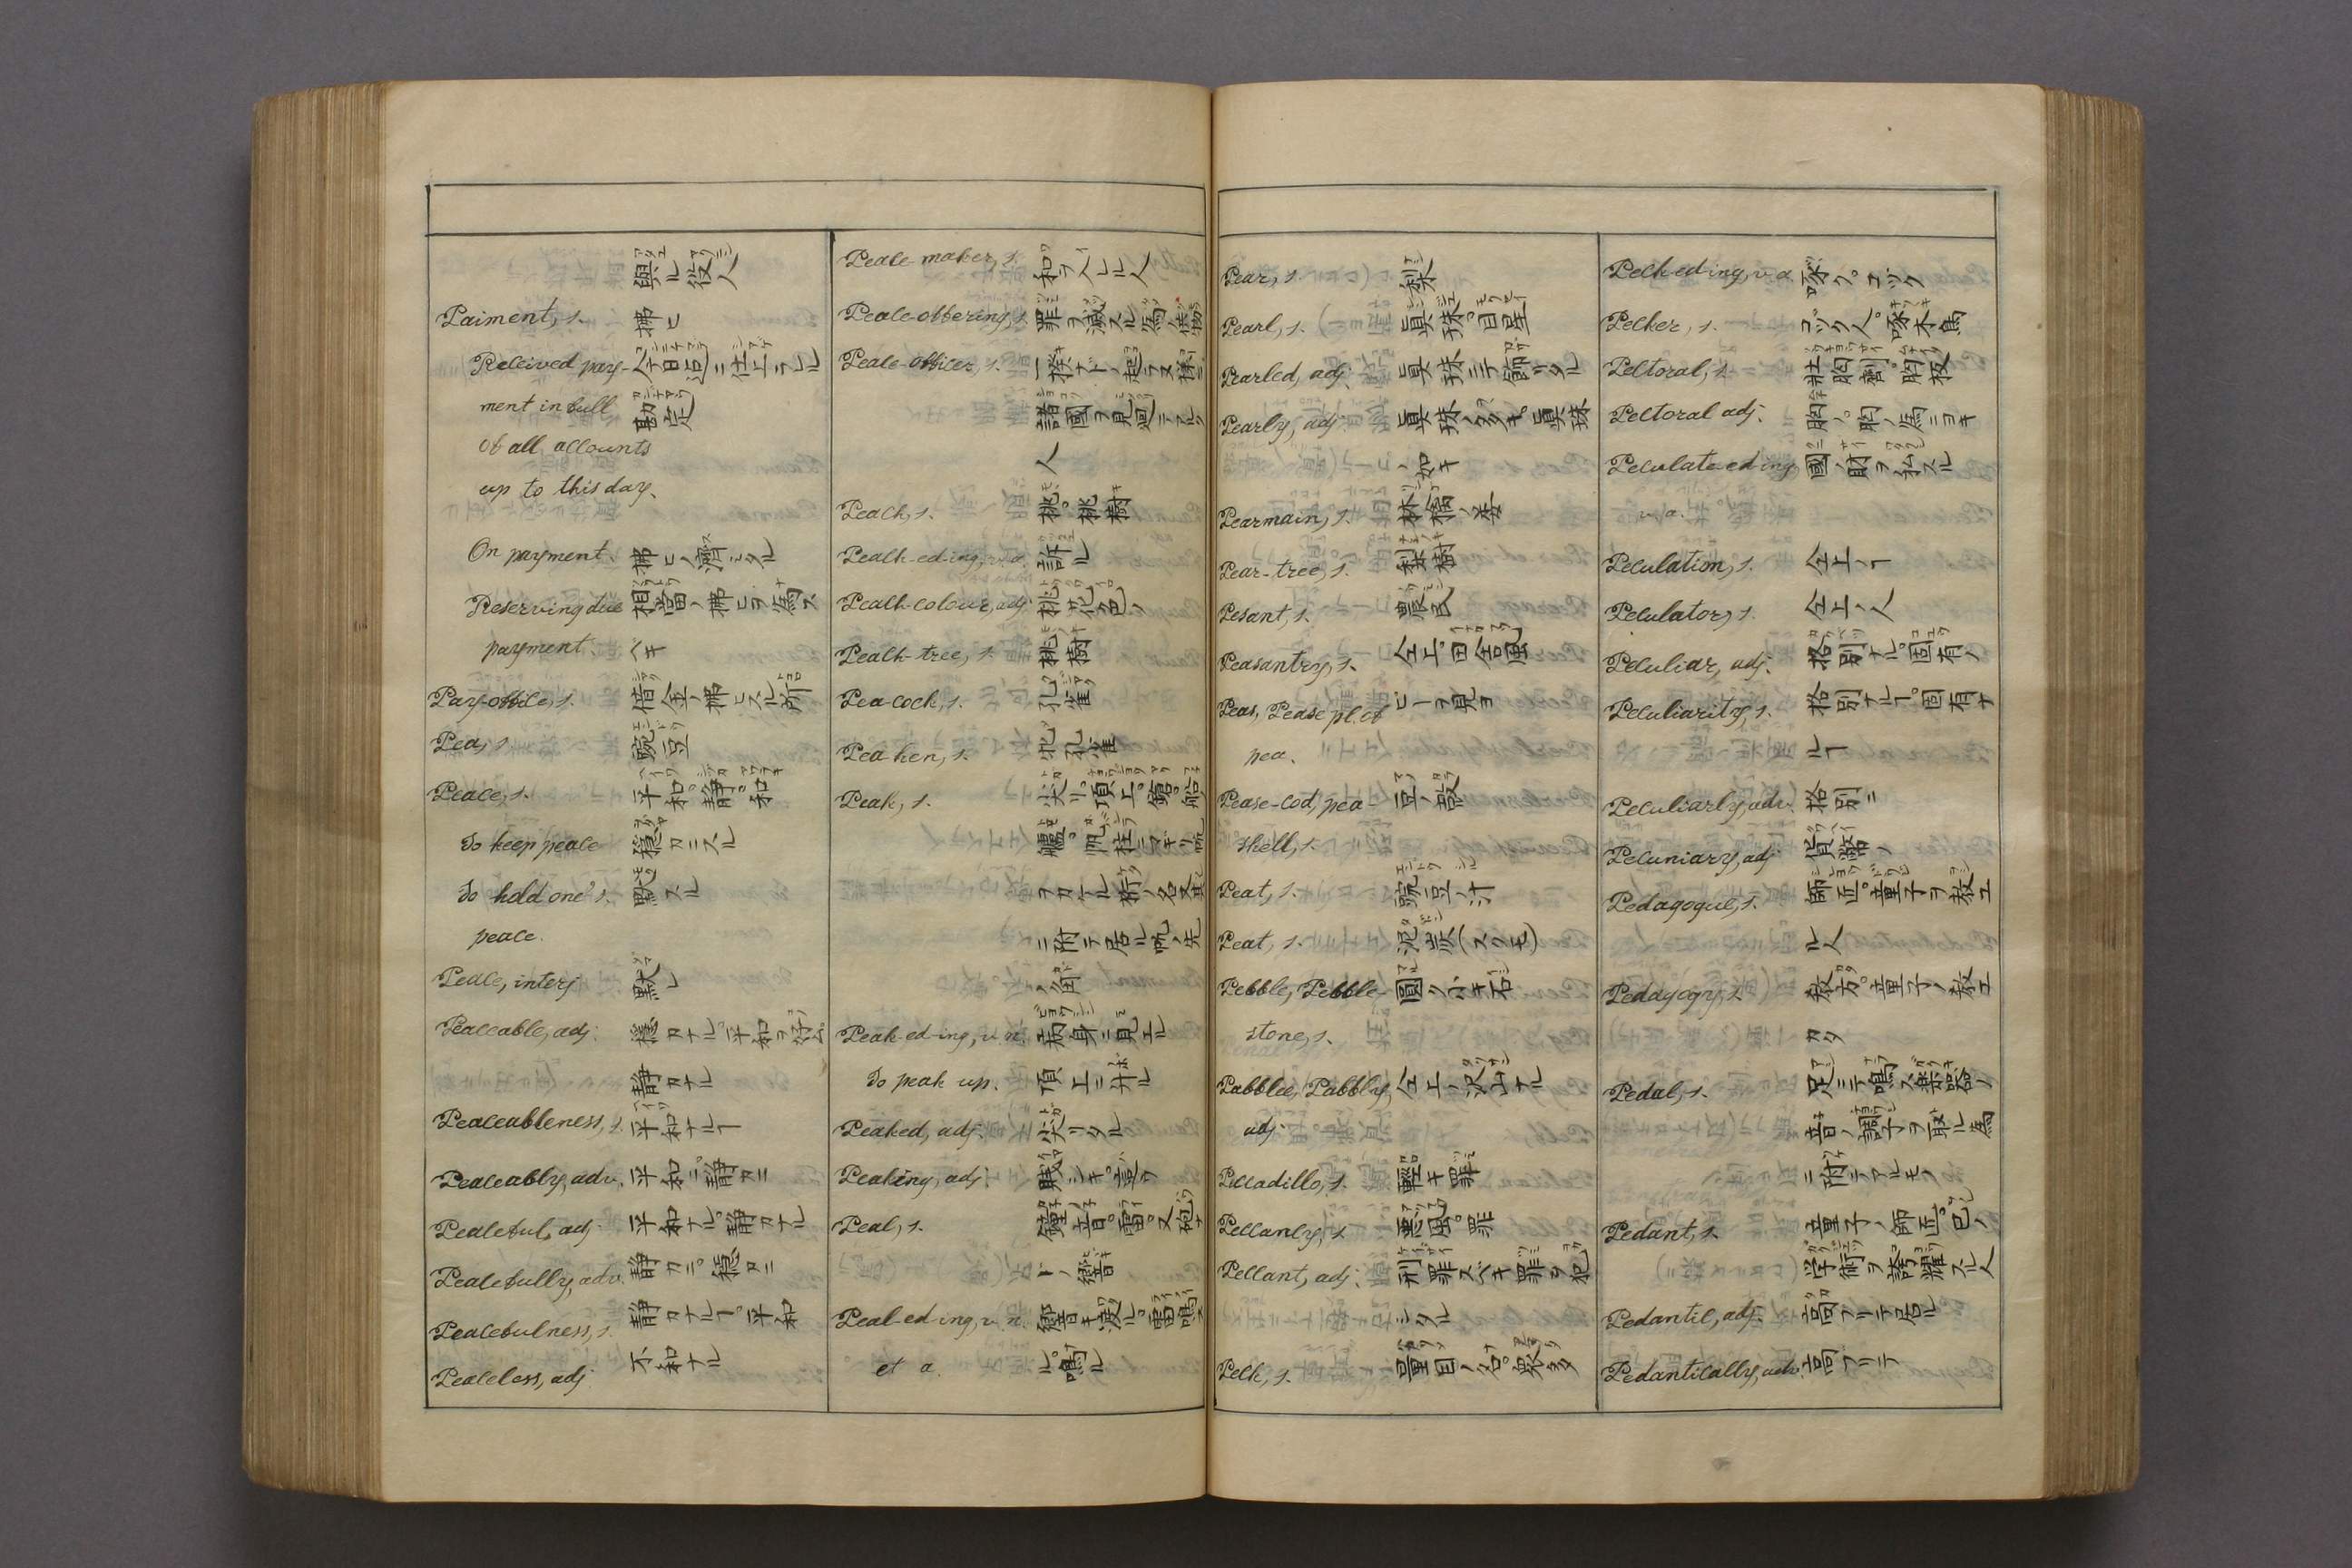 與ル役人
Paiment, s. 拂ヒ
Received pay- 今日迠ニ仕上ラヒル
ment in full 勘定
of all accounts
up to this day.
On payment. 拂ヒノ濟シタル
Reserving due 相當ノ拂ヒヲ為ス
payment. ベキ
Pay-office, s. 借金ノ拂ヒスル所
Pea, s. 豌豆
Peace, s. 平和。静。和
To keep peace 穏カニスル
To hold one's. 黙スル
peace.
Peace, interj 默レ
Peaceable, adj. 穏カナル。平和ヲ好ム
静カナル
Peaceableness, s. 平和ナルヿ
Peaceably, adv. 平和ニ。静カニ
Peaceful, adj. 平和ナル。静カナル
Peacefully, adv. 静カニ。穏カニ
Peacefulness, s. 静カナルヿ。平和
Peaceless, adj 不和ナル
Peace-maker, s. 和ヲ入ヒル人
Peace-offering, s. 罪ヲ滅スル為ノ
Peace-officer, s. 一揆ナドノ起ラヌ様ニ
諸國ヲ見廻ニアルク
人
Peach, s. 桃。桃樹
Peach-ed-ing, v. a. 訴ル
Peach-colour, adj. 桃花色ノ
Peach-tree, s. 桃樹
Peacock, s. 孔雀
Peahen, s. 牝孔雀
Peak, s. 尖リ。頂上。
ヲカケル桁ノ名又
ニ附テ居ル帆ノ先
Peak-ed-ing, v. n. 病身ニ見エル
To peak up. 頂上ニ升ル
Peaked, adj. 尖リタル
Peaking, adj. 賎シキ。
Peal, s. 鐘ノ音。雷。又砲ナ
ドノ響
Peal-ed-ing, v. n. 響キ渡ル。雷鳴ス
et a. ル。鳴ル
Pear, s. 梨
Pearl, s. 眞珠。目星
Pearled, adj. 眞珠ニテ飾リタル
Pearly, adj. 眞珠ノ多キ。眞珠
ノ如キ
Pearmain, s. 林檎ノ
Pear-tree, s. 梨樹
Pesant, s. 農民
Peasantry, s. 仝上。田舎風
Peas, Pease pl. of ピーヲ見ヨ
pea.
Pease-cod, pea- 豆ノ殻
shell, s.
Peat, s. 豌豆ノ汁
Peat, s. 泥炭(スクモ)
Pebble, Pebble- 圓ク小キ石
stone, s.
Pabblee, Pabbly, 仝上ノ沢山ナル
adj.
Peccadillo, s. 輕キ罪
Peccancy, s. 悪風。罪
Peccant, adj. 刑罪スベキ罪ヲ犯
シタル
Peck, s. 量目ノ名。衆多
Peck-ed-ing, v. a. 啄ク。コツク
Pecker, s. コツク人。啄木鳥
Pectoral, s. 壯胸劑。胸板
Pectoral adj. 胸ノ。胸ノ為ニヨキ
Peculate-ed-ing 國ノ財ヲ私スル
v. a.
Peculation, s. 仝上ノヿ
Peculator, s. 仝上ノ人
Peculiar, adj. 格別ナル。固有ノ
Peculiarity, s. 格別ナルヿ。固有ナ
ルヿ
Peculiarly, adv. 格別ニ
Pecuniary, adj. 貨幣ノ
Pedagogue, s. 師匠。童子ヲ教ユ
ル人
Pedagogy, s. 教方。童子ノ教エ
カタ
Pedal, s. 足ニテ鳴ス楽器ノ
音ノ調子ヲ取ル為
ニ附テアルモノ
Pedant, s. 童子ノ師匠。己ノ
学術ヲ誇耀スル人
Pedantic, adj. 高ブリテ居ル
Pedantically, adv. 高ブリテ